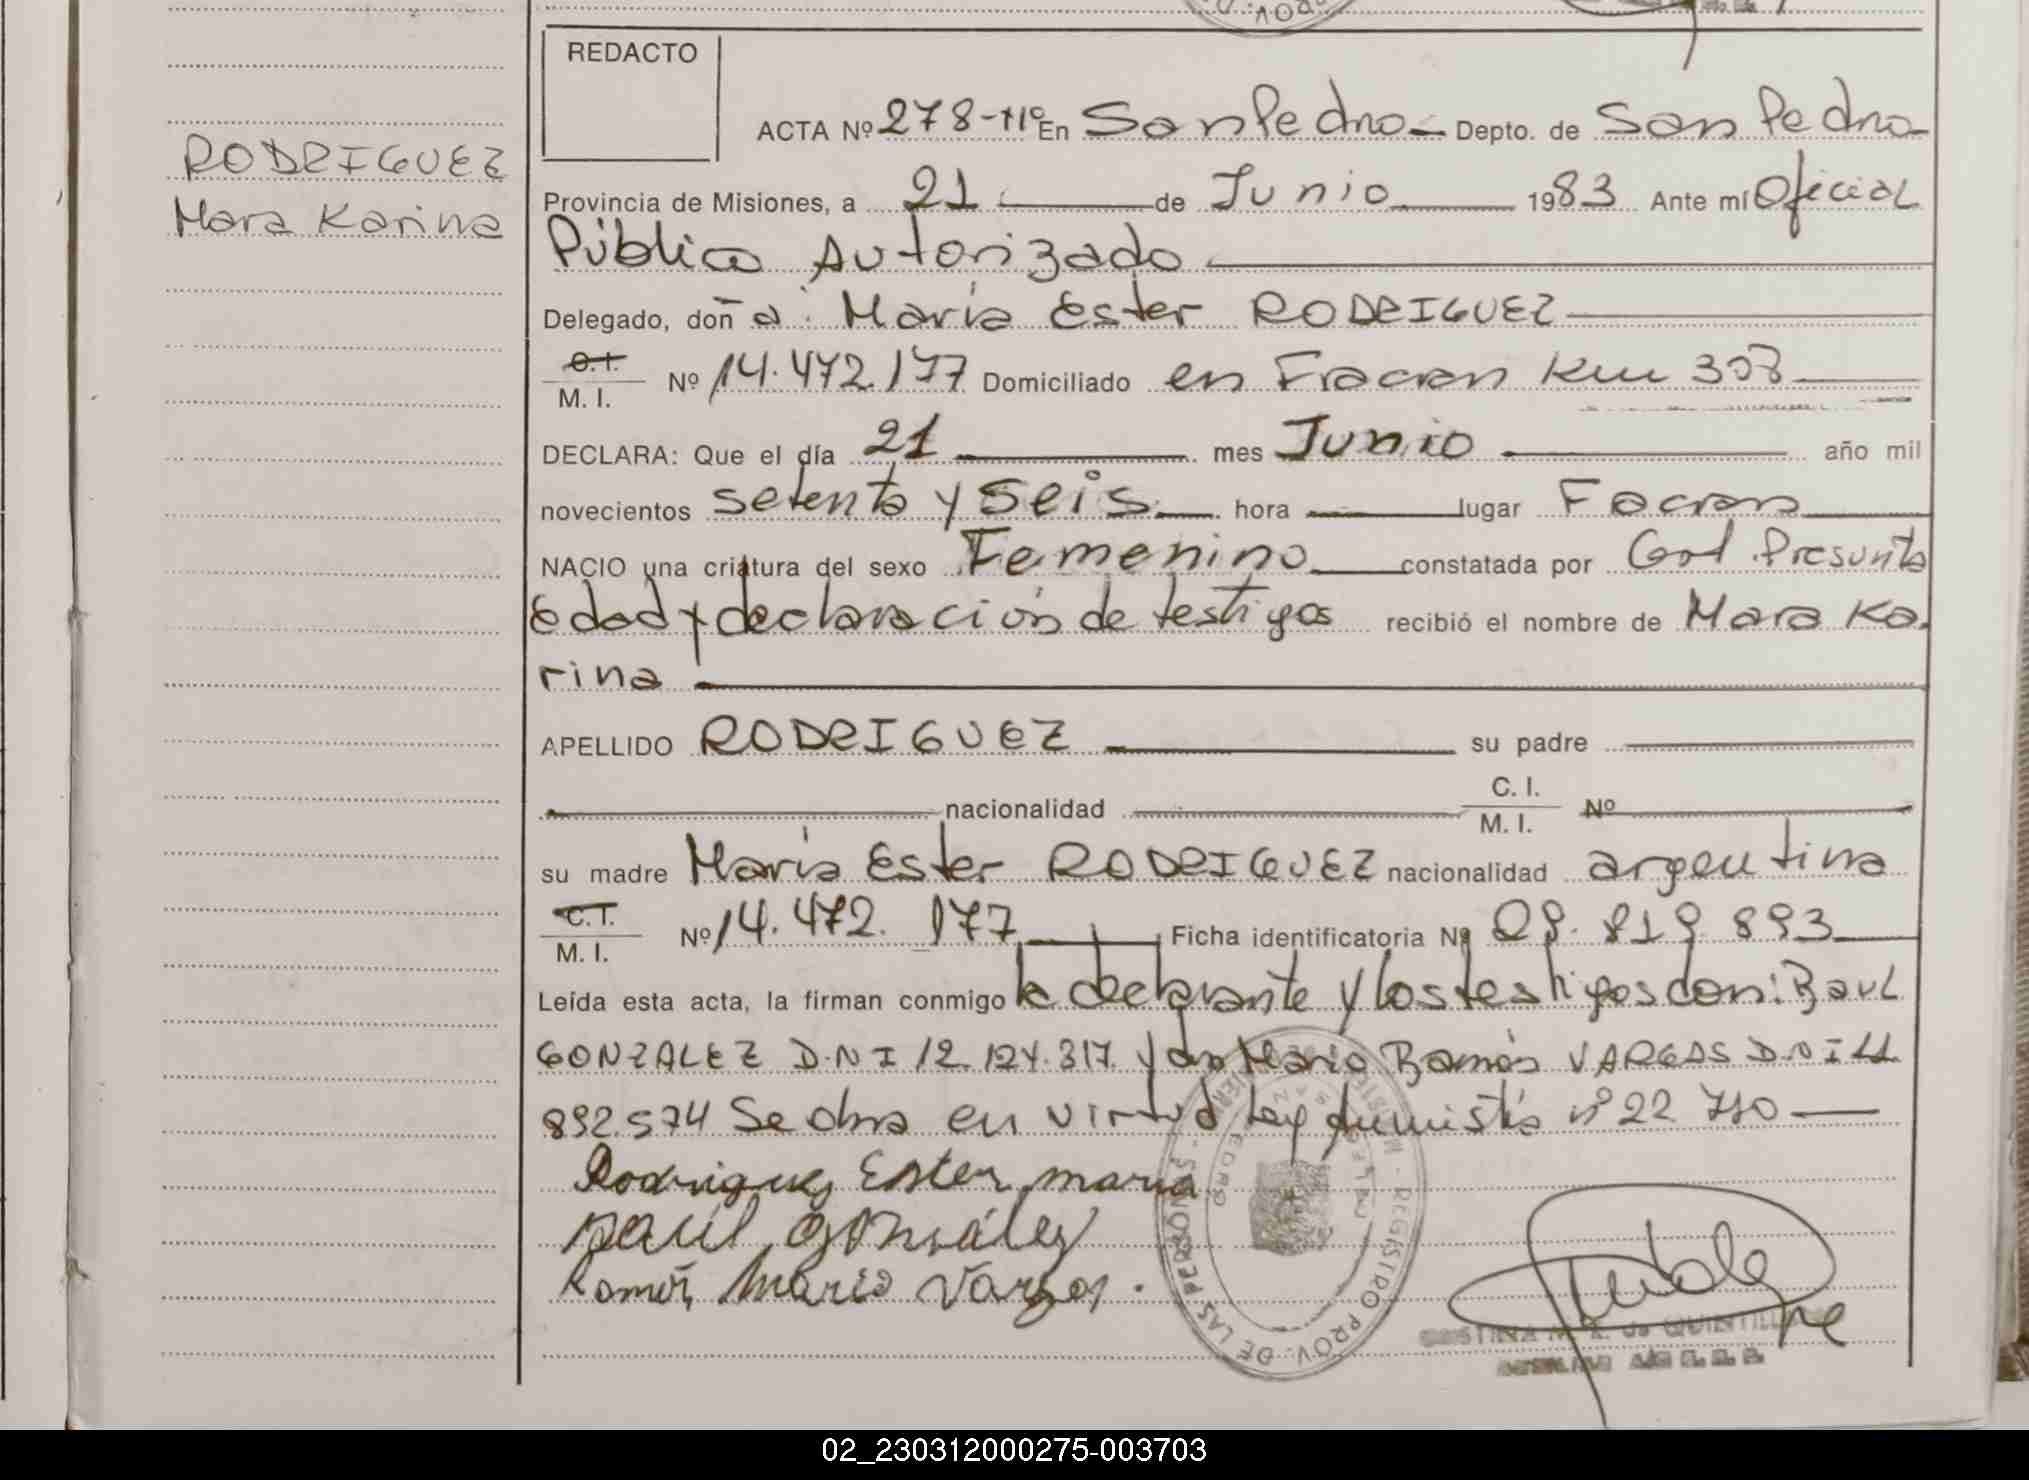 REDACTO
ACTA Nº 278-Tº En San Pedro Depto. de San Pedro
RODRIGUEZ
Mara Karina
Provincia de Misiones, a 21 de Junio 1983 Ante mí Oficial
Público Autorizado
Delegado, doña María Ester RODRIGUEZ
C.I.
M. I. Nº 14.472.177 Domiciliado en Fracran Km 308
DECLARA: Que el día 21 mes Junio año mil
novecientos setenta y seis hora lugar Facran
NACIO una criatura del sexo Femenino constatada por Cert. Presunta
edad y declaración de testigos recibió el nombre de Mara Ka
rina
APELLIDO RODRIGUEZ su padre
nacionalidad C. I.
M. I. Nº
su madre María Ester RODRIGUEZ nacionalidad argentina
C.I.
M. I. Nº 14.472.177 Ficha identificatoria Nº
Leída esta acta, la firman conmigo la declarante y los testigos don: Raul
GONZALEZ D.N I 12.124.317 y don Mario Ramón VARGAS D.N I 11.
892.574 Se obra en virtud Ley amnistía nº 22 710
Rodriguez Ester maria
Raúl González
Ramón Mario Vargas.
REGISTRO PROV. DE LAS PERSONAS
02_230312000275-003703